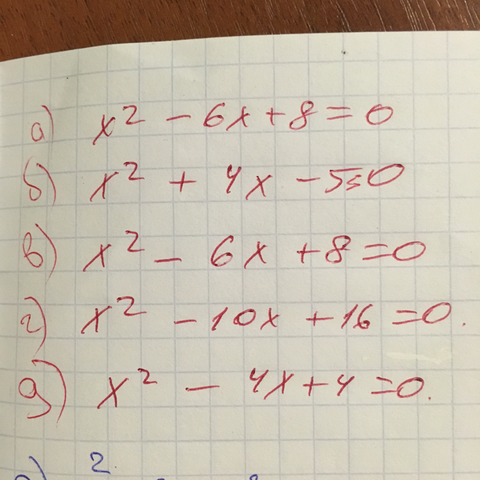 а) x² - 6x + 8 = 0
б) x² + 4x - 5 = 0
в) x² - 6x + 8 = 0
г) x² - 10x + 16 = 0.
д) x² - 4x + 4 = 0.